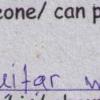 eone/ can p
uitar w